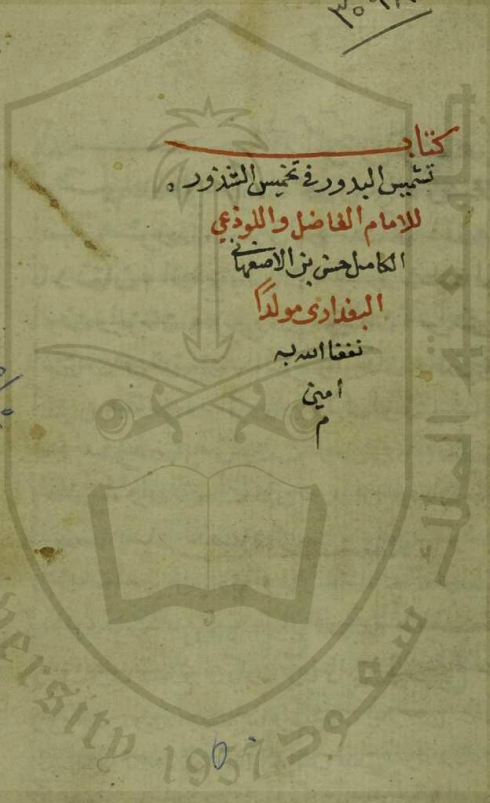 كتاب
تشميس البدور في تخميس الشذور
للامام الفاضل واللوذعي
الكامل حسن بن الاصفهاني
البغدادي مولدا
نفعنا الله به
امين
م
جامعة الملك سعود
University 1957